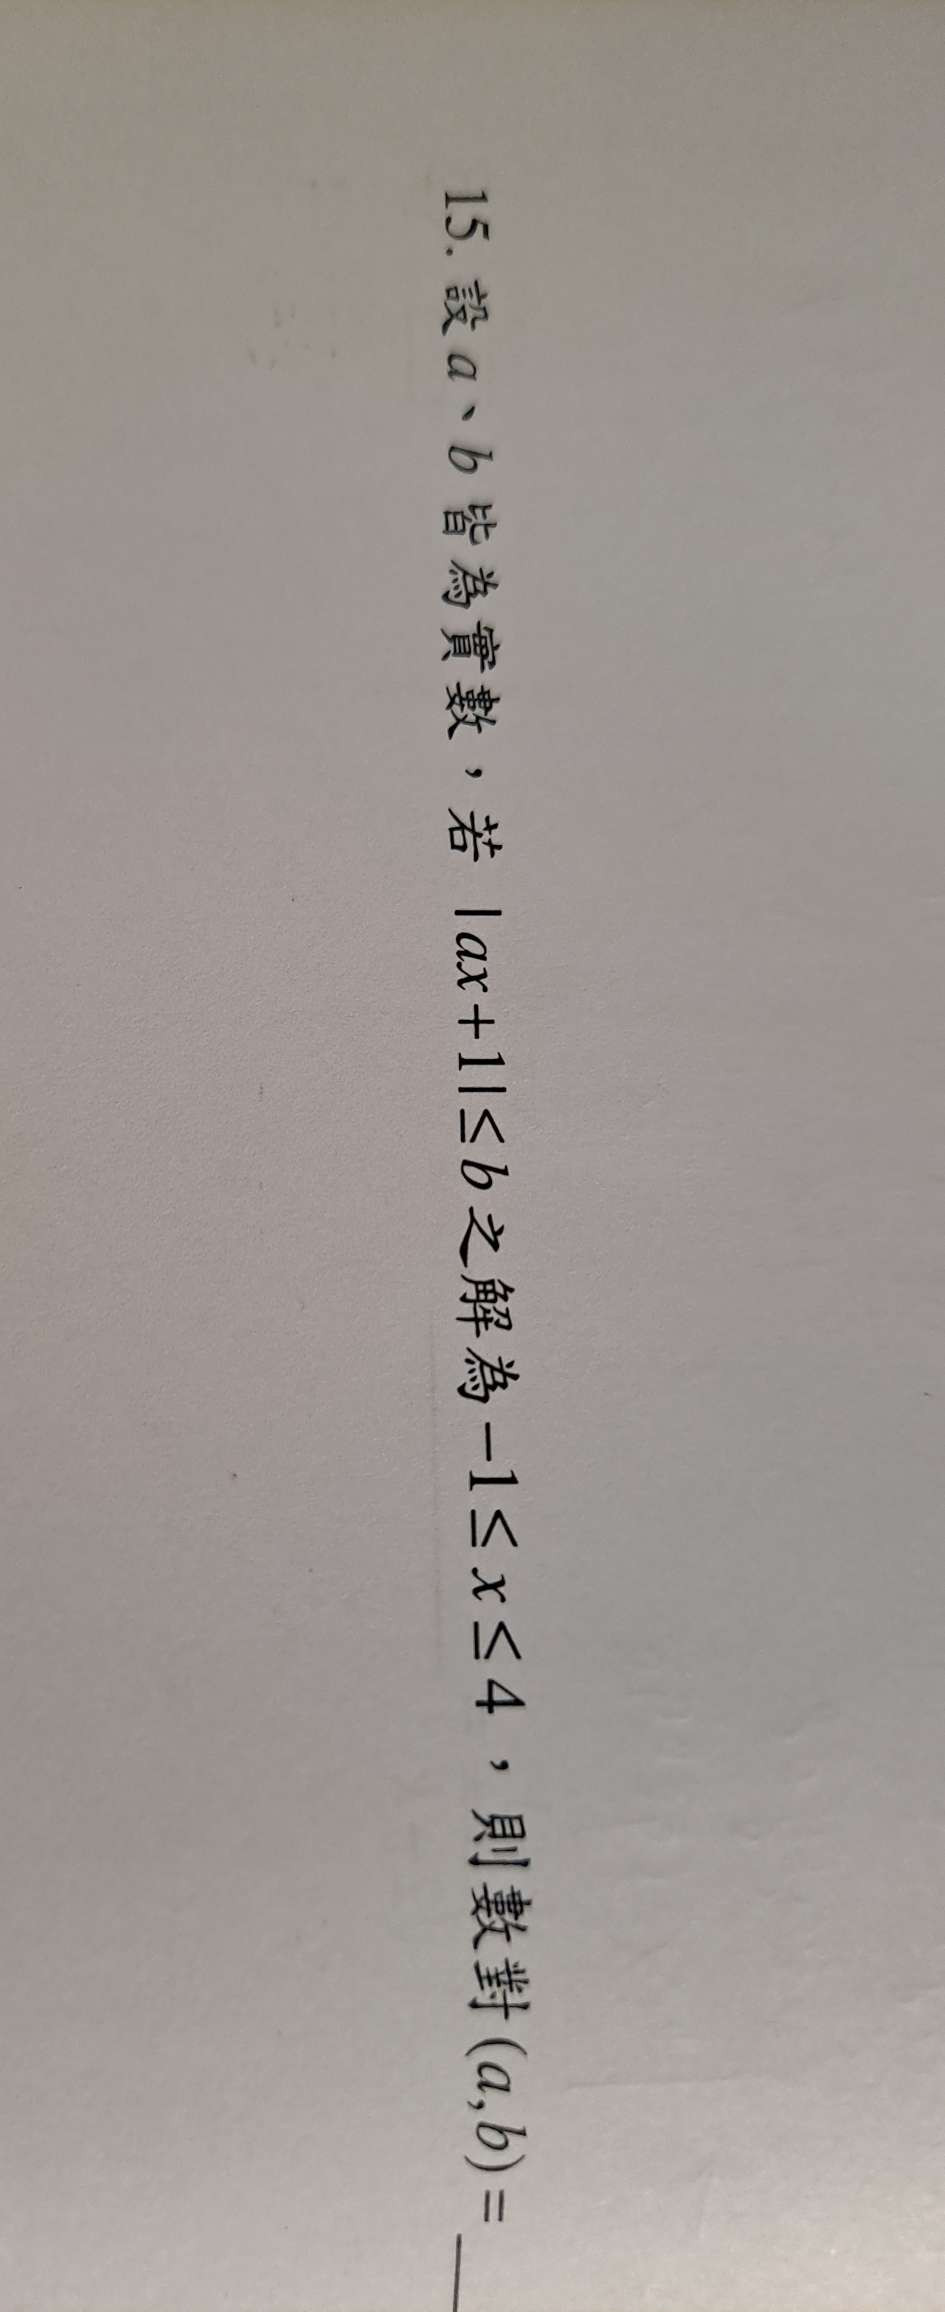 15. 設 a、b 皆為實數，若 |ax+1|≤b 之解為 −1≤x≤4，則數對 (a,b)=＿